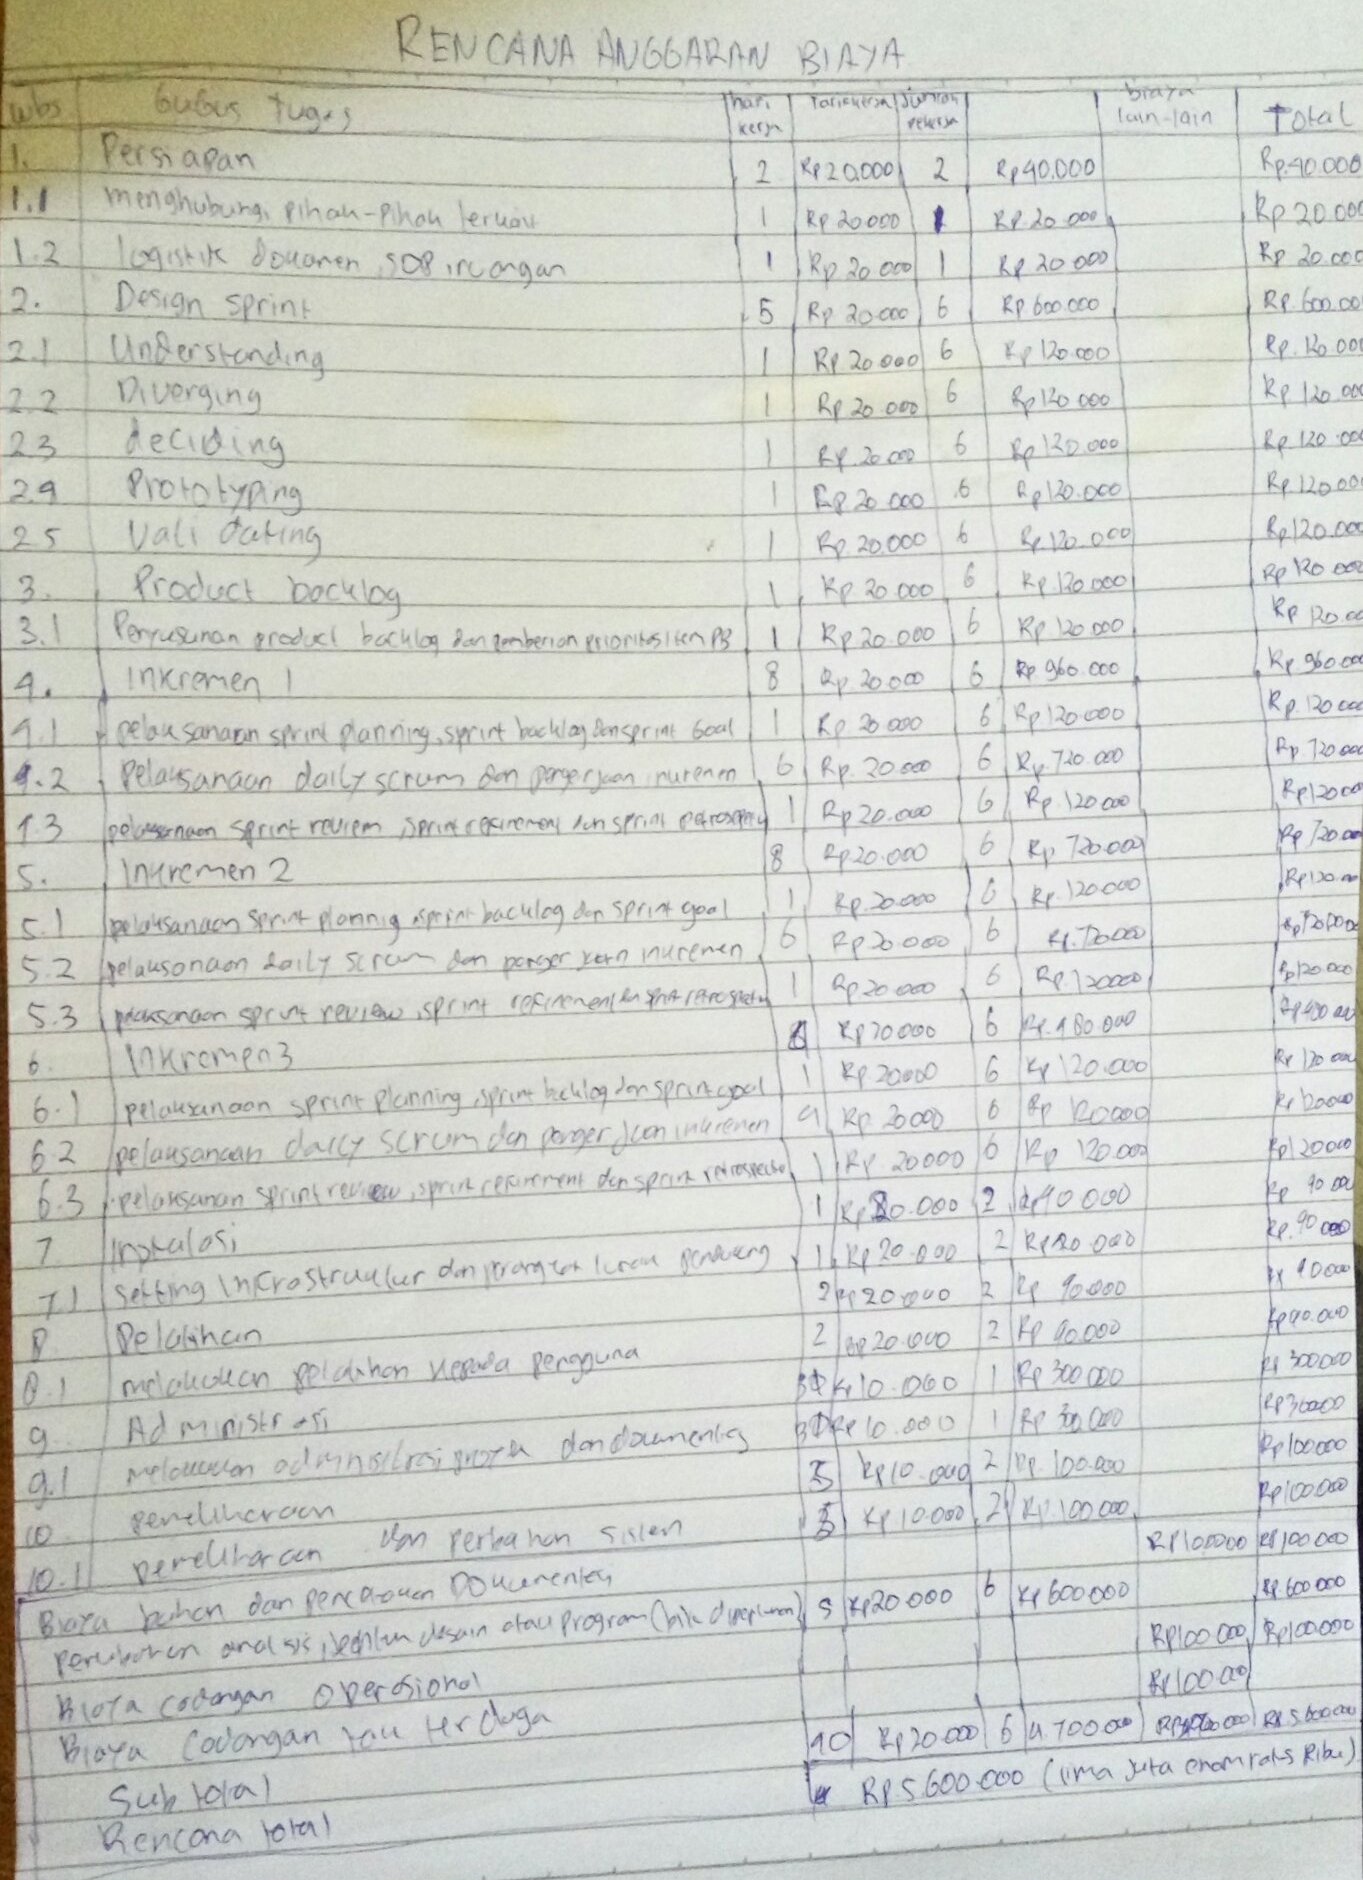 RENCANA ANGGARAN BIAYA
wbs Gugus tugas hari kerja Tarif kerja Jumlah pekerja biaya lain-lain Total
1. Persiapan 2 Rp 20.000 2 Rp 40.000 Rp. 40.000
1.1 menghubungi pihak-pihak terkait 1 Rp 20.000 1 Rp 20.000 Rp 20.000
1.2 logistik dokumen, SOP, ruangan 1 Rp 20 000 1 Rp 20 000 Rp 20.000
2. Design sprint 5 Rp 20 000 6 Rp 600.000 Rp. 600.00
2.1 Understanding 1 Rp 20 000 6 Rp 120.000 Rp. 120.000
2.2 Diverging 1 Rp 20 000 6 Rp 120.000 Rp. 120.000
2.3 deciding 1 Rp 20 000 6 Rp 120.000 Rp. 120.000
2.4 Prototyping 1 Rp 20.000 6 Rp 120.000 Rp. 120.000
2.5 Validating 1 Rp 20.000 6 Rp. 120.000 Rp 120.000
3. Product backlog 1 Rp 20.000 6 Rp. 120.000 Rp 120.000
3.1 Penyusunan product backlog dan pemberian prioritas item PB 1 Rp 20.000 6 Rp 120.000 Rp 120.00
4. Inkremen 1 8 Rp 20.000 6 Rp 960.000 Rp 960.000
4.1 pelaksanaan sprint planning, sprint backlog dan sprint Goal 1 Rp 20.000 6 Rp 120.000 Rp. 120.000
4.2 pelaksanaan daily scrum dan pengerjaan inkremen 6 Rp. 20.000 6 Rp. 720.000 Rp 720.000
4.3 pelaksanaan sprint review, sprint refinement dan sprint retrospektif 1 Rp 20.000 6 Rp 120.000 Rp 120.000
5. Inkremen 2 8 Rp 20.000 6 Rp 720.000 Rp 720.000
5.1 pelaksanaan sprint plannig, sprint backlog dan sprint goal 1 Rp. 20.000 6 Rp. 120.000 Rp 120.00
5.2 pelaksanaan daily scrum dan pengerjaan inkremen 6 Rp 20 000 6 Rp. 720.000 Rp 720.000
5.3 pelaksanaan sprint review, sprint refinement dan sprint retrospektif 1 Rp 20.000 6 Rp. 120000 Rp 120.000
6. Inkremen 3 Rp 20.000 6 Rp. 480.000 Rp 480.000
6.1 pelaksanaan sprint planning, sprint backlog dan sprint goal 1 Rp 20000 6 Rp 120.000 Rp 120.000
6.2 pelaksanaan daily scrum dan pengerjaan inkremen 4 Rp. 20000 6 Rp 120000 Rp 120000
6.3 pelaksanan sprint review, sprint refinement dan sprint retrospektif 1 Rp. 20000 6 Rp 120.000 Rp 120000
7 Instalasi 1 Rp 20.000 2 Rp 40.000 Rp 40 000
7.1 Setting infrastruktur dan perangkat lunak pendukung 1 Rp 20.000 2 Rp 40.000 Rp. 40 000
8 Pelatihan 2 Rp 20.000 2 Rp 40.000 Rp 40000
8.1 melakukan pelatihan kepada pengguna 2 Rp 20.000 2 Rp 40.000 Rp 40.000
9. Administrasi 30 Rp 10.000 1 Rp 300 000 Rp 300000
9.1 melakukan administrasi proyek dan documentasi 30 Rp 10.000 1 Rp 300.000 Rp 300000
10 pemeliharaan 5 Rp 10.000 2 Rp. 100.000 Rp 100000
10.1 pemeliharaan dan perbahan sistem 5 Rp 10.000 2 Rp. 100.000 Rp 100 000
Biaya bahan dan pencetakan Dokumentasi Rp 100000 Rp 100000
perubahan analisis, desain atau program (bila diperlukan) 5 Rp 20.000 6 Rp 600.000 Rp 600000
Biaya cadangan Operasional Rp 100.000 Rp 100.000
Biaya Cadangan tak terduga Rp 100.000
Sub total 40 Rp 20.000 6 4.700 000 Rp 5.600.000
Rencana total Rp. 5.600.000 (lima juta enam ratus Ribu)